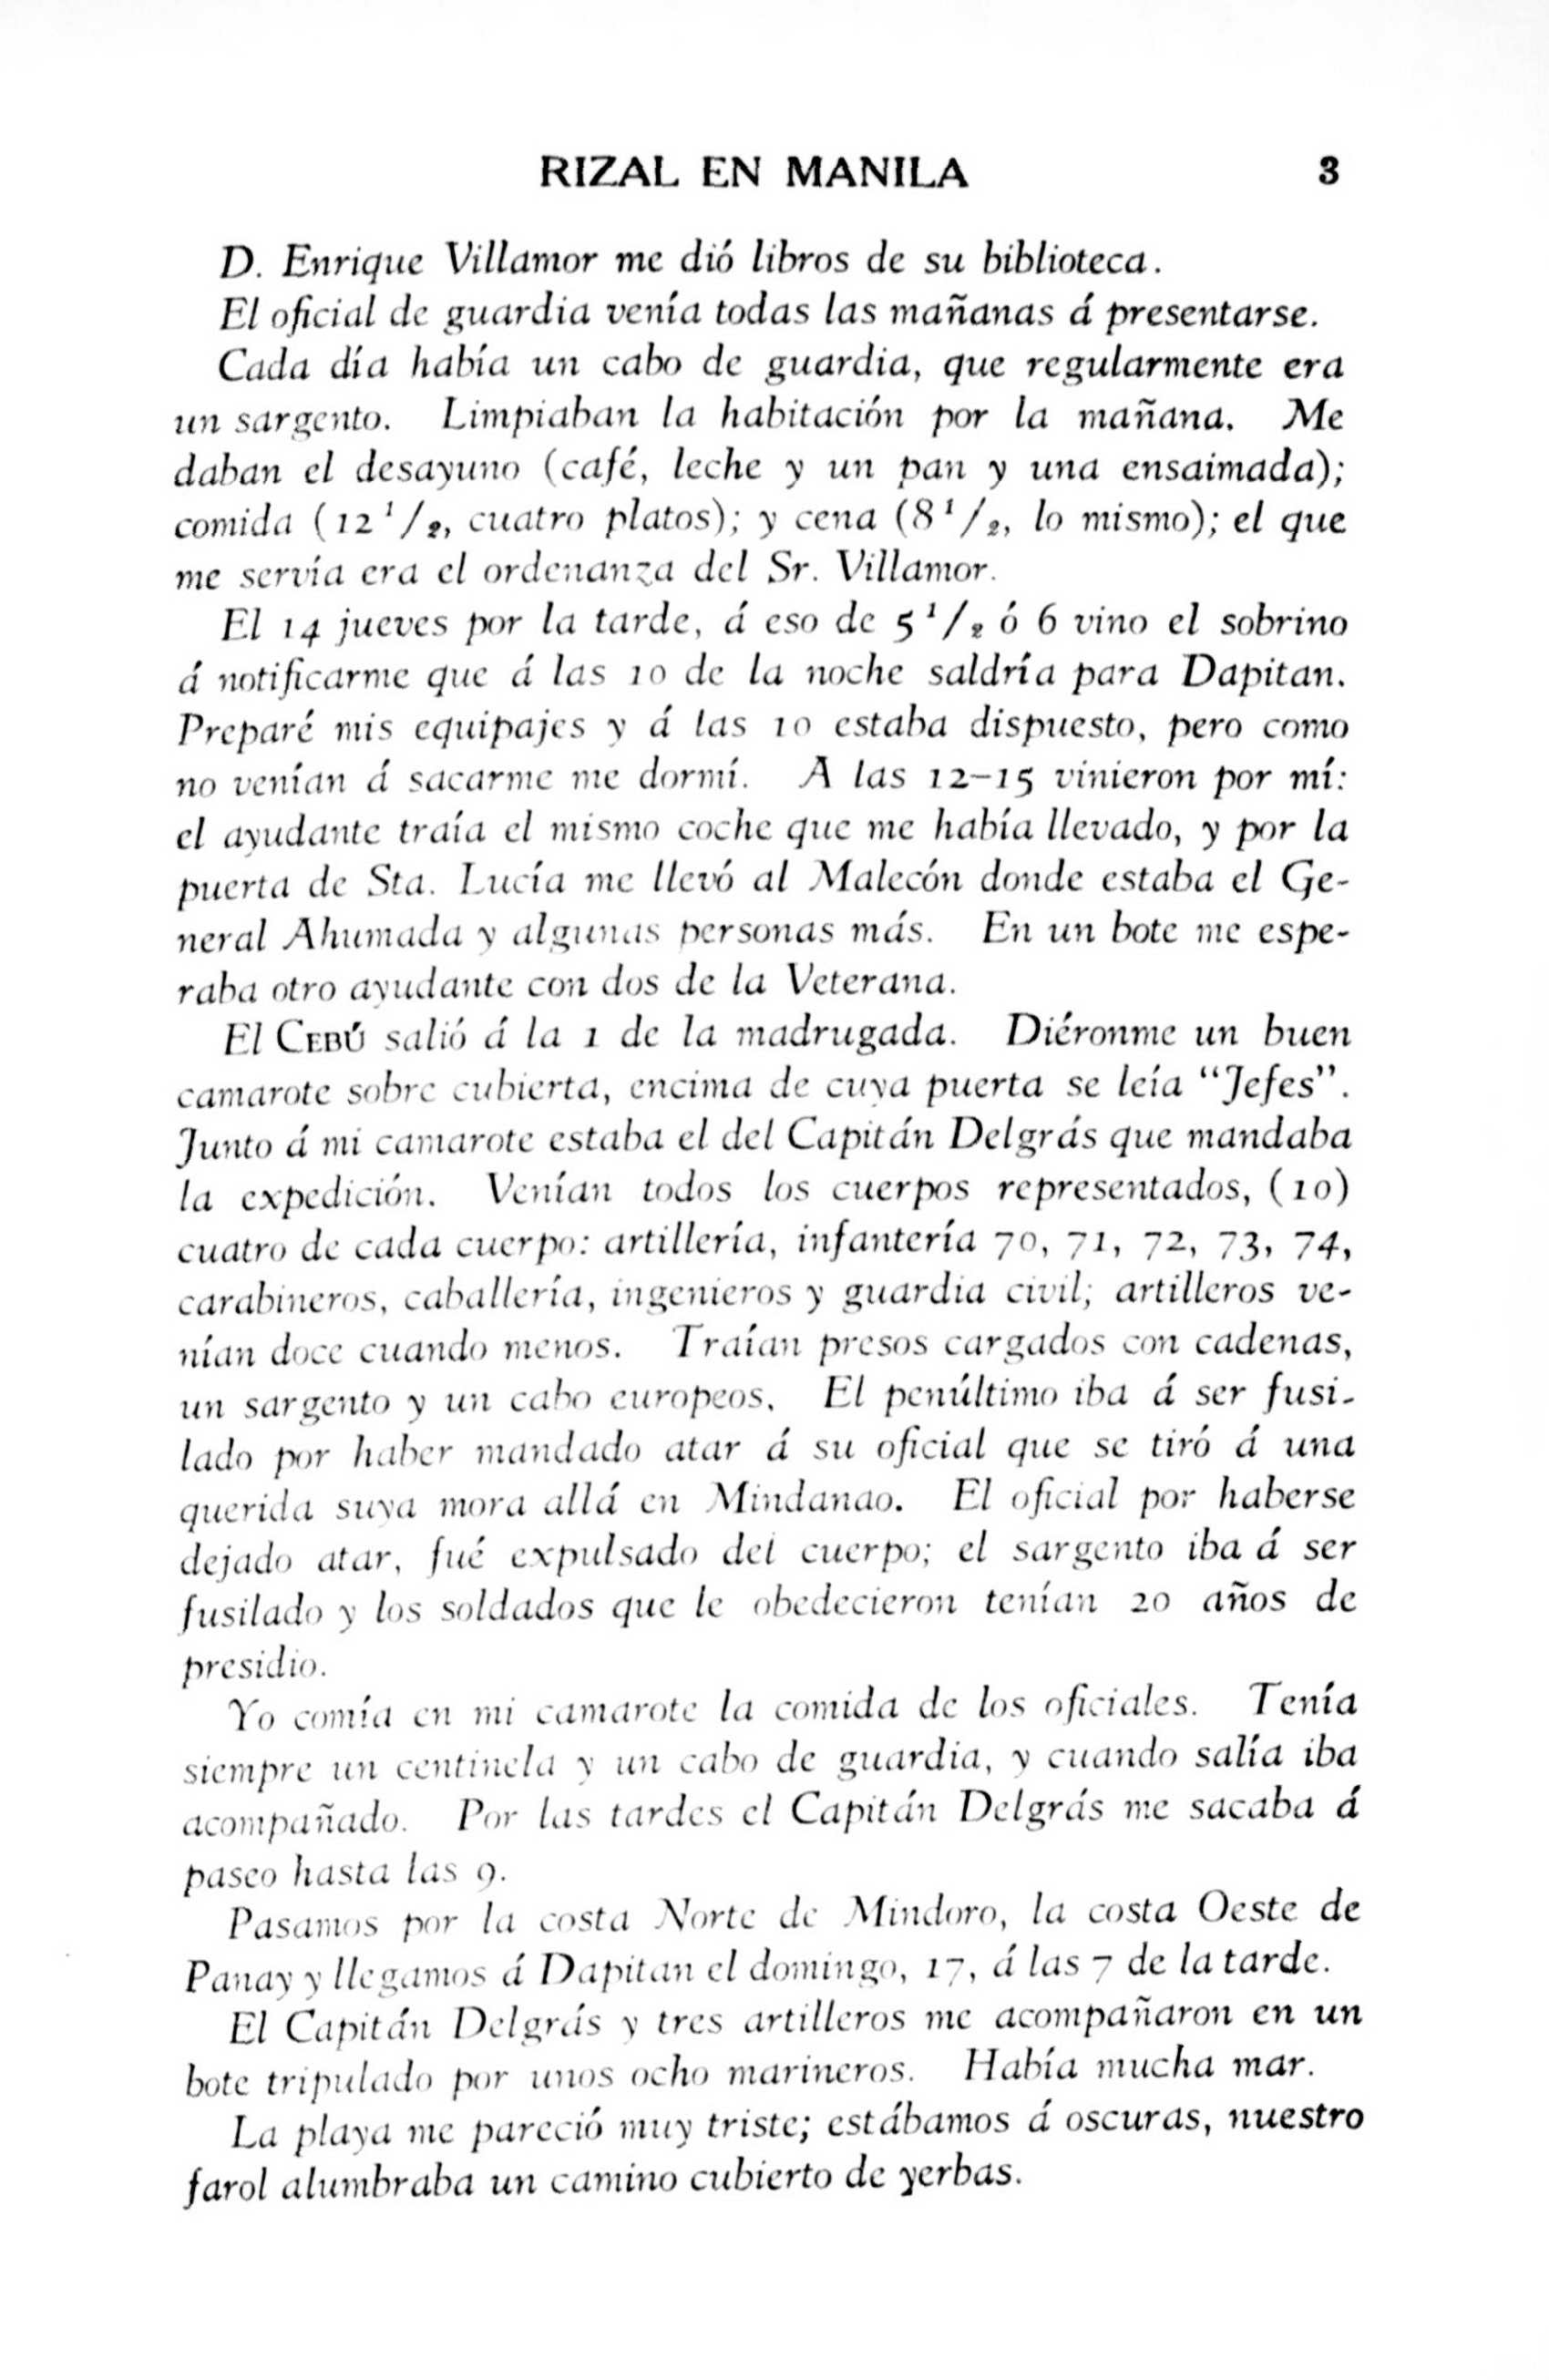 RIZAL EN MANILA 3
D. Enrique Villamor me dió libros de su biblioteca.
El oficial de guardia venía todas las mañanas á presentarse.
Cada día había un cabo de guardia, que regularmente era
un sargento. Limpiaban la habitación por la mañana. Me
daban el desayuno (café, leche y un pan y una ensaimada);
comida (12 1/2, cuatro platos); y cena (8 1/2, lo mismo); el que
me servía era el ordenanza del Sr. Villamor.
El 14 jueves por la tarde, á eso de 5 1/2 ó 6 vino el sobrino
á notificarme que á las 10 de la noche saldría para Dapitan.
Preparé mis equipajes y á las 10 estaba dispuesto, pero como
no venían á sacarme me dormí. A las 12–15 vinieron por mí:
el ayudante traía el mismo coche que me había llevado, y por la
puerta de Sta. Lucía me llevó al Malecón donde estaba el Ge-
neral Ahumada y algunas personas más. En un bote me espe-
raba otro ayudante con dos de la Veterana.
El CEBÚ salió á la 1 de la madrugada. Diéronme un buen
camarote sobre cubierta, encima de cuya puerta se leía “Jefes”.
Junto á mi camarote estaba el del Capitán Delgrás que mandaba
la expedición. Venían todos los cuerpos representados, (10)
cuatro de cada cuerpo: artillería, infantería 70, 71, 72, 73, 74,
carabineros, caballería, ingenieros y guardia civil; artilleros ve-
nían doce cuando menos. Traían presos cargados con cadenas,
un sargento y un cabo europeos. El penúltimo iba á ser fusi-
lado por haber mandado atar á su oficial que se tiró á una
querida suya mora allá en Mindanao. El oficial por haberse
dejado atar, fué expulsado del cuerpo; el sargento iba á ser
fusilado y los soldados que le obedecieron tenían 20 años de
presidio.
Yo comía en mi camarote la comida de los oficiales. Tenía
siempre un centinela y un cabo de guardia, y cuando salía iba
acompañado. Por las tardes el Capitán Delgrás me sacaba á
paseo hasta las 9.
Pasamos por la costa Norte de Mindoro, la costa Oeste de
Panay y llegamos á Dapitan el domingo, 17, á las 7 de la tarde.
El Capitán Delgrás y tres artilleros me acompañaron en un
bote tripulado por unos ocho marineros. Había mucha mar.
La playa me pareció muy triste; estábamos á oscuras, nuestro
farol alumbraba un camino cubierto de yerbas.